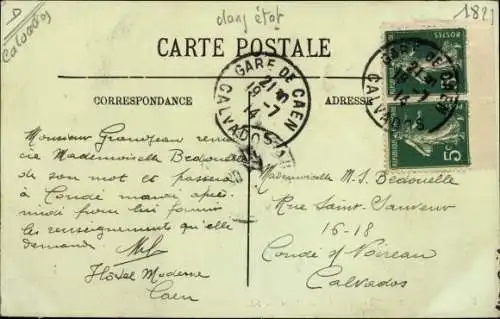 D
Calvados
dans état
1821
CARTE POSTALE
CORRESPONDANCE
ADRESSE
GARE DE CAEN
21 35
19 -7
14
CALVADOS
GARE DE CAEN
21
19 -7
14
CALVADOS
POSTES
5c
Monsieur Grandjean remer
cie Mademoiselle Bedouelle
de son mot et passera
à Condé mardi après
midi pour lui fournir
les renseignements qu'elle
demande.
Hôtel Moderne
Caen
Mademoiselle M. S. Bedouelle
Rue Saint-Sauveur
16-18
Condé s/ Noireau
Calvados